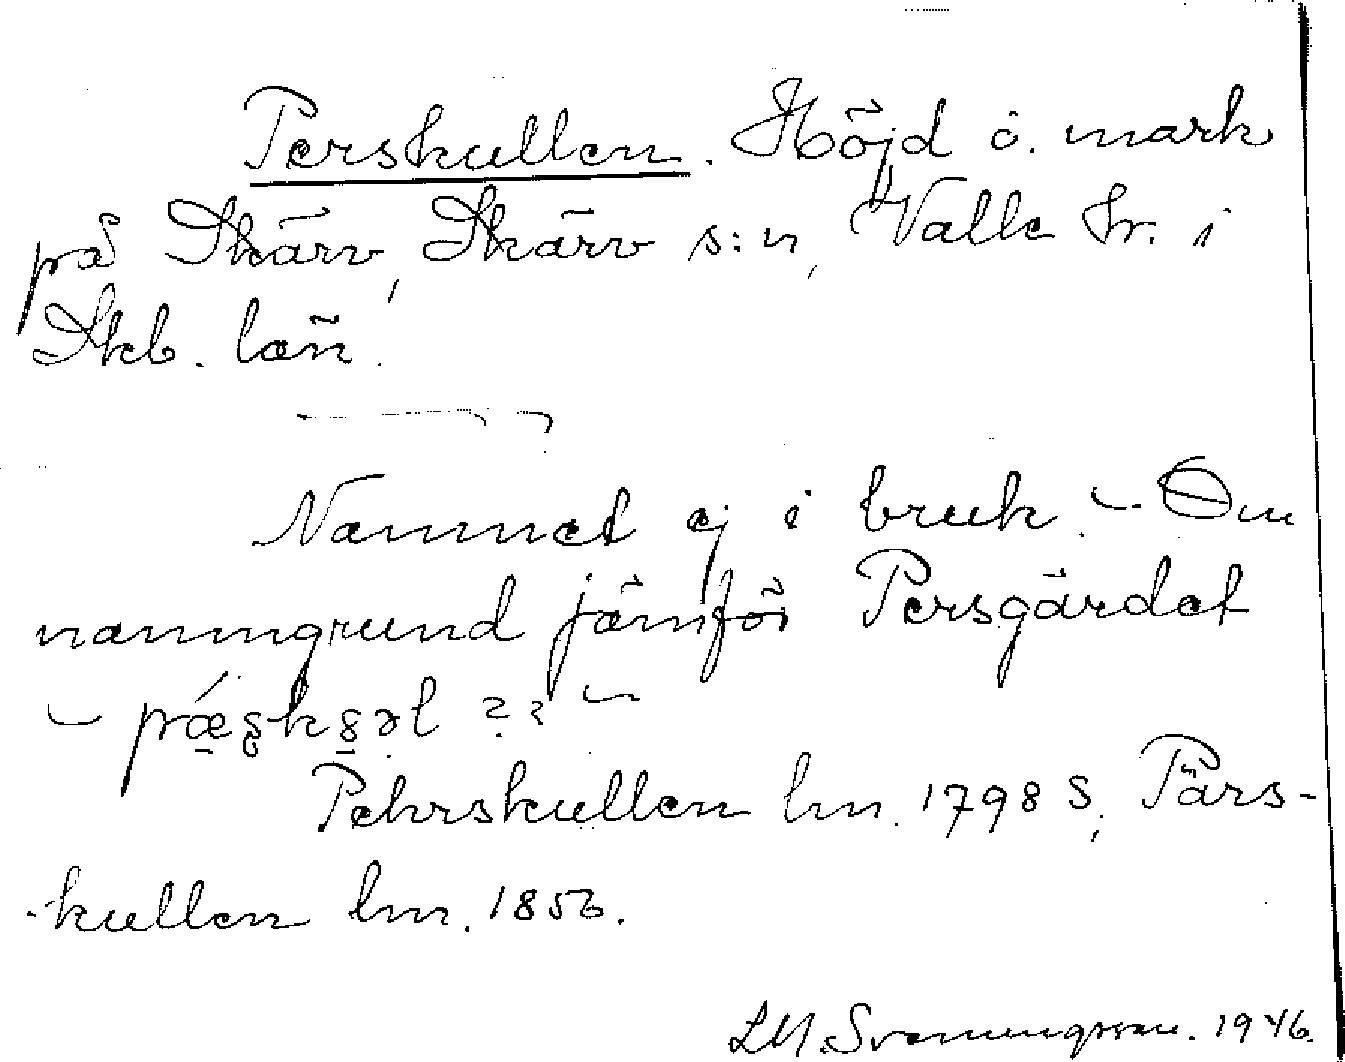 Perskullen. Höjd o. mark
på Skärv, Skärv s:n, Valle hr. i
Skb. län.
Namnet ej i bruk. – Om
namngrund jämför Persgärdet
Pehrskullen lm. 1798 S; Pärs-
-kullen lm. 1856.
LM. Svenungsson. 1946.